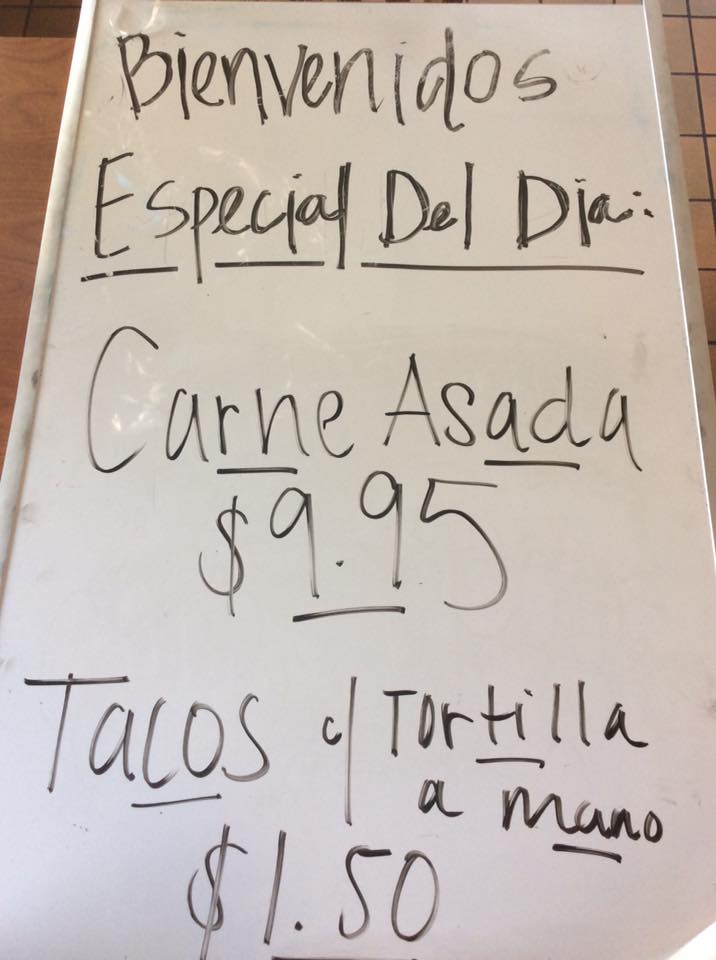 Bienvenidos
Especial Del Dia:
Carne Asada
$9.95
Tacos c/ Tortilla
a mano
$1.50